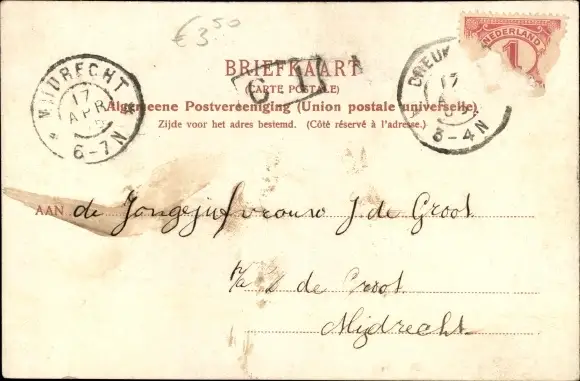 € 3,50
NEDERLAND
1
MIJDRECHT
17
APR
6-7N
17
3-4N
BRIEFKAART
(CARTE POSTALE)
Algemeene Postvereeniging (Union postale universelle).
Zijde voor het adres bestemd. (Côté réservé à l'adresse.)
AAN de Jongejufvrouw J. de Groot
de Groot
Mijdrecht